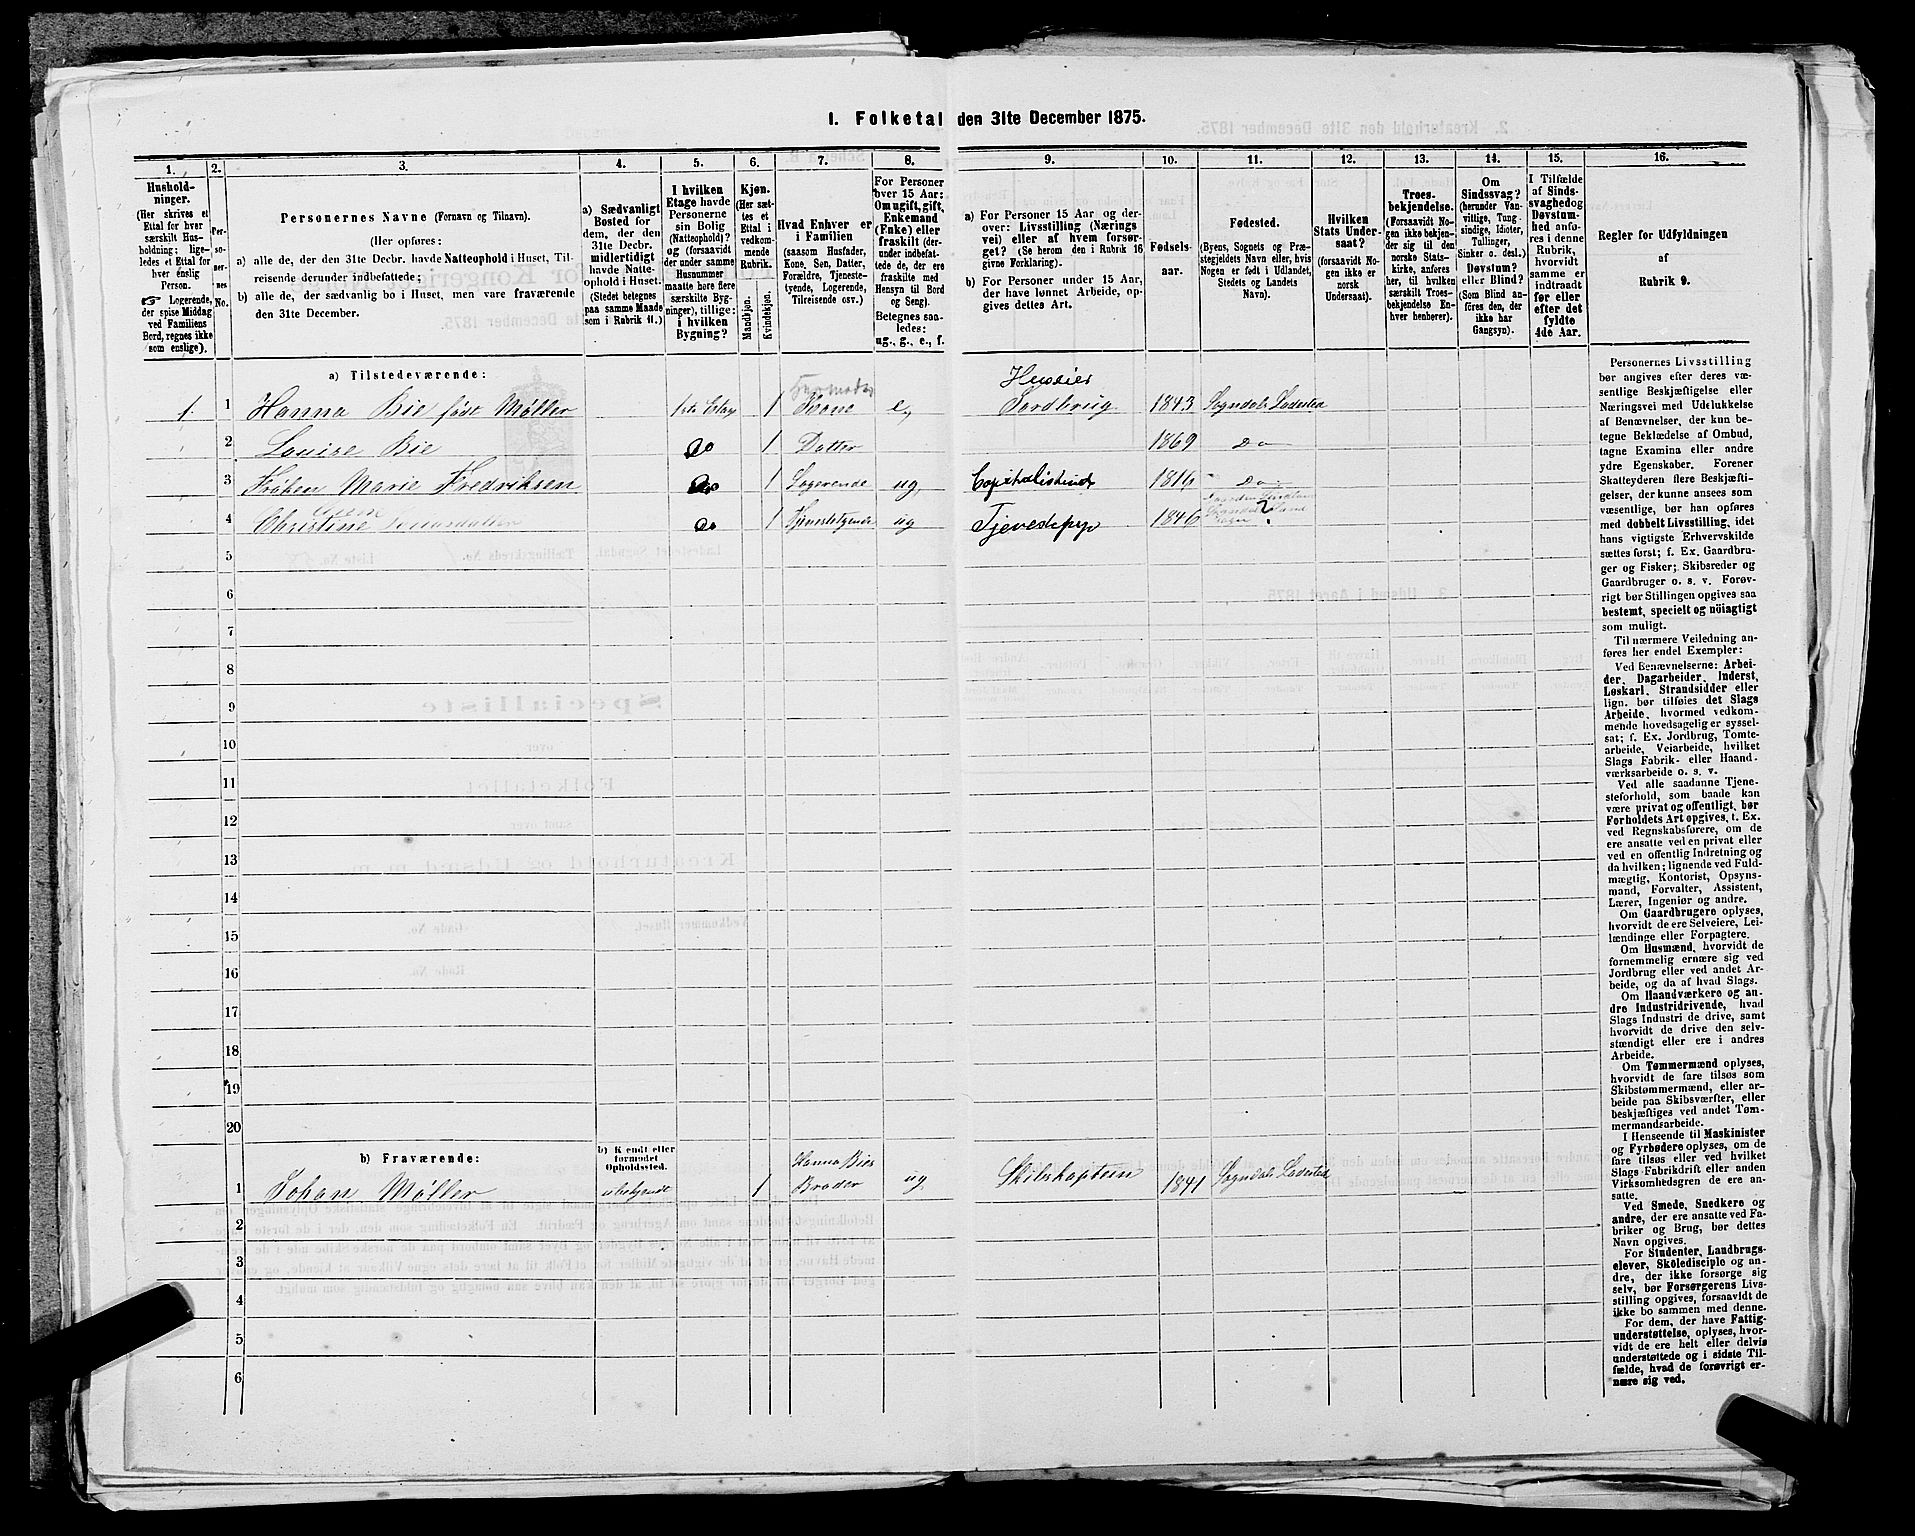 1. Folketal den 31te December 1875.
1. 2. 3. 4. 5. 6. 7. 8. 9. 10. 11. 12. 13. 14. 15. 16.
Hushold-
ninger.
(Her skrives et
Ettal for hver
særskilt Hus-
holdning; lige-
ledes et Ettal for
hver enslig
Person.
☞ Logerende,
der spise Middag
ved Familiens
Bord, regnes ikke
som enslige).
Per-
so-
ner-
nes
No.
Personernes Navne (Fornavn og Tilnavn).
(Her opføres:
a) alle de, der den 31te Decbr. havde Natteophold i Huset, Til-
reisende derunder indbefattede;
b) alle de, der sædvanlig bo i Huset, men vare fraværende
den 31te December.
a) Sædvanligt
Bosted for
dem, der den
31te Decbr.
midlertidigt
havde Natte-
ophold i Huset.
(Stedet betegnes
paa samme Maade
som i Rubrik 11.)
I hvilken
Etage havde
Personerne
sin Bolig
(Natteophold)?
og (forsaavidt
der under samme
Husnummer
maatte høre flere
særskilte Byg-
ninger), tillige:
i hvilken
Bygning?
Kjøn.
(Her sæt-
tes et
Ettal i
vedkom-
mende
Rubrik.
Mandkjøn.
Kvindekjøn.
Hvad Enhver er
i Familien
(saasom Husfader,
Kone, Søn, Datter,
Forældre, Tjeneste-
tyende, Logerende,
Tilreisende osv.)
For Personer
over 15 Aar:
Om ugift, gift,
Enkemand
(Enke) eller
fraskilt (der-
under indbefat-
tede de, der ere
fraskilte med
Hensyn til Bord
og Seng).
Betegnes saa-
ledes:
ug., g., e., f.
a) For Personer 15 Aar og der-
over: Livsstilling (Nærings-
vei) eller af hvem forsør-
get? (Se herom den i Rubrik 16
givne Forklaring).
b) For Personer under 15 Aar,
der have lønnet Arbeide, op-
gives dettes Art.
Fødsels-
aar.
Fødested.
(Byens, Sognets og Præ-
stegjeldets Navn eller, hvis
Nogen er født i Udlandet,
Stedets og Landets
Navn).
Hvilken
Stats Under-
saat?
(forsaavidt No-
gen ikke er
norsk
Undersaat).
Troes-
bekjendelse.
(Forsaavidt No-
gen ikke bekjen-
der sig til den
norske Stats-
kirke, anføres
her, til hvilken
særskilt Troes-
bekjendelse En-
hver henhører).
Om
Sindssvag?
(herunder Van-
vittige, Tung-
sindige, Idioter,
Tullinger,
Sinker o. desl.)
Døvstum?
eller Blind?
(Som Blind an-
føres den, der
ikke har
Gangsyn).
I Tilfælde
af Sinds-
svaghed og
Døvstum-
hed anfø-
res i denne
Rubrik,
hvorvidt
samme er
indtraadt
før eller
efter det
fyldte
4de Aar.
Regler for Udfyldningen
af
Rubrik 9.
a) Tilstedeværende:
1. 1 Hanna Bie født Møller 1ste Etag 1 Kone e, Huseier Jordbrug 1843 Sogndals Ladested
2 Louise Bie Do 1 Datter 1869 Do
3 Frøken Marie Fredriksen Do 1 Logerende ug, Capitalistinde 1816 Do
4 Christine Do 1 Tjenestetyende ug Tjenestepige 1846 ?
5
6
7
8
9
10
11
12
13
14
15
16
17
18
19
20
b) Fraværende: b) Kjendt eller
formodet
Opholdssted.
1 Johan Møller ubekjendt 1 Hanna Bies Broder ug Skibskaptein 1841 Sogndals Ladested
2
3
4
5
6
Personernes Livsstilling
bør angives efter deres væ-
sentlige Beskjæftigelse eller
Næringsvei med Udelukkelse
af Benævnelser, der kun be-
tegne Beklædelse af Ombud,
tagne Examina eller andre
ydre Egenskaber. Forener
Skatteyderen flere Beskjæfti-
gelser, der kunne ansees som
væsentlige, bør han opføres
med dobbelt Livsstilling, idet
hans vigtigste Erhvervskilde
sættes først; f. Ex. Gaardbru-
ger og Fisker; Skibsreder og
Gaardbruger o. s. v. Forøv-
rigt bør Stillingen opgives saa
bestemt, specielt og nøiagtigt
som muligt.
Til nærmere Veiledning an-
føres her endel Exempler:
Ved Benævnelserne: Arbei-
der, Dagarbeider, Inderst,
Løskarl, Strandsidder eller
lign. bør tilføies det Slags
Arbeide, hvormed vedkom-
mende hovedsagelig er syssel-
sat; f. Ex. Jordbrug, Tomte-
arbeide, Veiarbeide, hvilket
Slags Fabrik- eller Haand-
værksarbeide o. s. v.
Ved alle saadanne Tjene-
steforhold, som baade kan
være privat og offentligt, bør
Forholdets Art opgives, t. Ex.
ved Regnskabsførere, om de
ere ansatte ved en privat eller
ved en offentlig Indretning og
da hvilken; lignende ved Fuld-
mægtig, Kontorist, Opsyns-
mand, Forvalter, Assistent,
Lærer, Ingeniør og andre.
Om Gaardbrugere oplyses,
hvorvidt de ere Selveiere, Lei-
lændinge eller Forpagtere.
Om Husmænd, hvorvidt de
fornemmelig ernære sig ved
Jordbrug eller ved andet Ar-
beide, og da af hvad Slags.
Om Haandværkere og an-
dre Industridrivende, hvad
Slags Industri de drive, samt
hvorvidt de drive den selv-
stændigt eller ere i andres
Arbeide.
Om Tømmermænd oplyses,
hvorvidt de fare tilsøs som
Skibstømmermænd, eller ar-
beide paa Skibsværfter, eller
beskjæftiges ved andet Tøm-
mermandsarbeide.
I Henseende til Maskinister
og Fyrbødere oplyses, om de
fare tilsøs eller ved hvilket
Slags Fabrikdrift eller anden
Virksomhedsgren de ere an-
satte.
Ved Smede, Snedkere og
andre, der ere ansatte ved Fa-
briker og Brug, bør dettes
Navn opgives.
For Studenter, Landbrugs-
elever, Skoledisciple og an-
dre, der ikke forsørge sig
selv, bør Forsørgerens Livs-
stilling opgives, forsaavidt de
ikke bo sammen med denne.
For dem, der have Fattig-
understøttelse, oplyses, hvor-
vidt de ere helt eller delvis
understøttede og i sidste Til-
fælde, hvad de forøvrigt er-
nære sig ved.